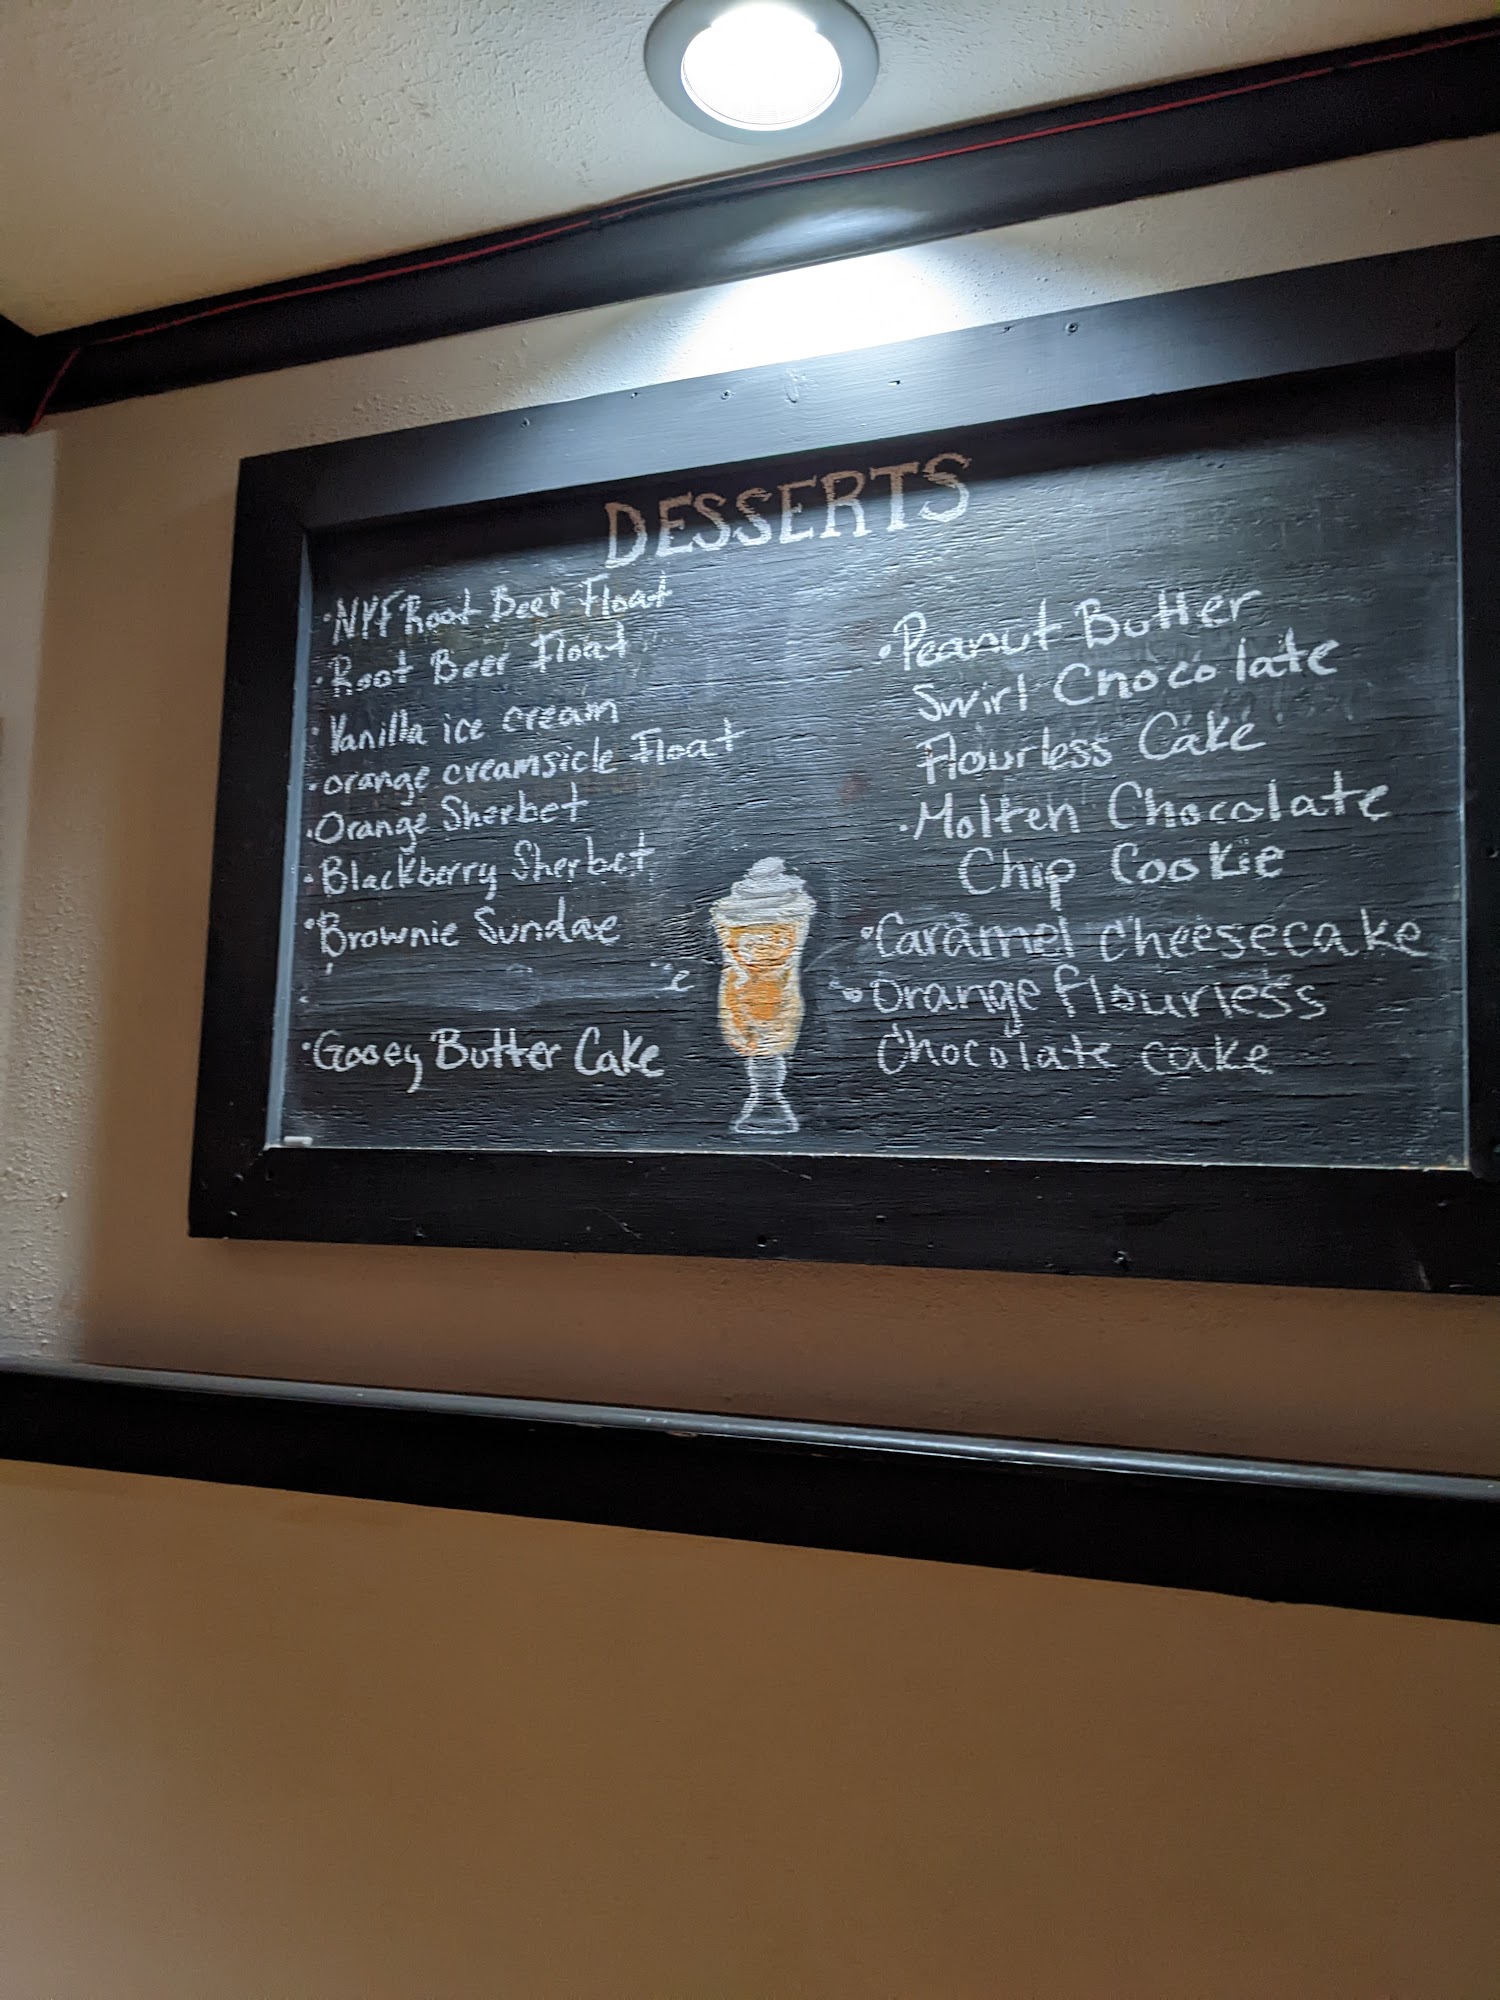 DESSERTS
• NYF Root Beer Float
• Root Beer Float
• Vanilla ice cream
• orange creamsicle Float
• Orange Sherbet
• Blackberry Sherbet
• Brownie Sundae
• Gooey Butter Cake
• Peanut Butter
Swirl Chocolate
Flourless Cake
• Molten Chocolate
Chip Cookie
• Caramel cheesecake
• Orange flourless
Chocolate cake